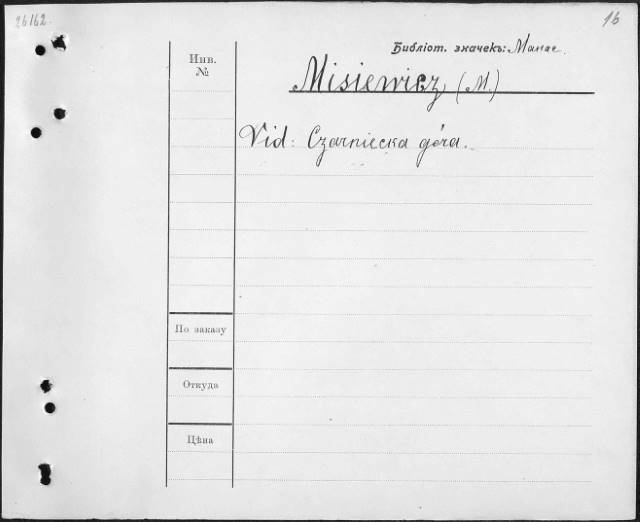 26162.
16
Библіот. значекъ:
Инв.
№
Misiewicz (M.)
Vid: Czarniecka góra.
По заказу
Откуда
Цѣна